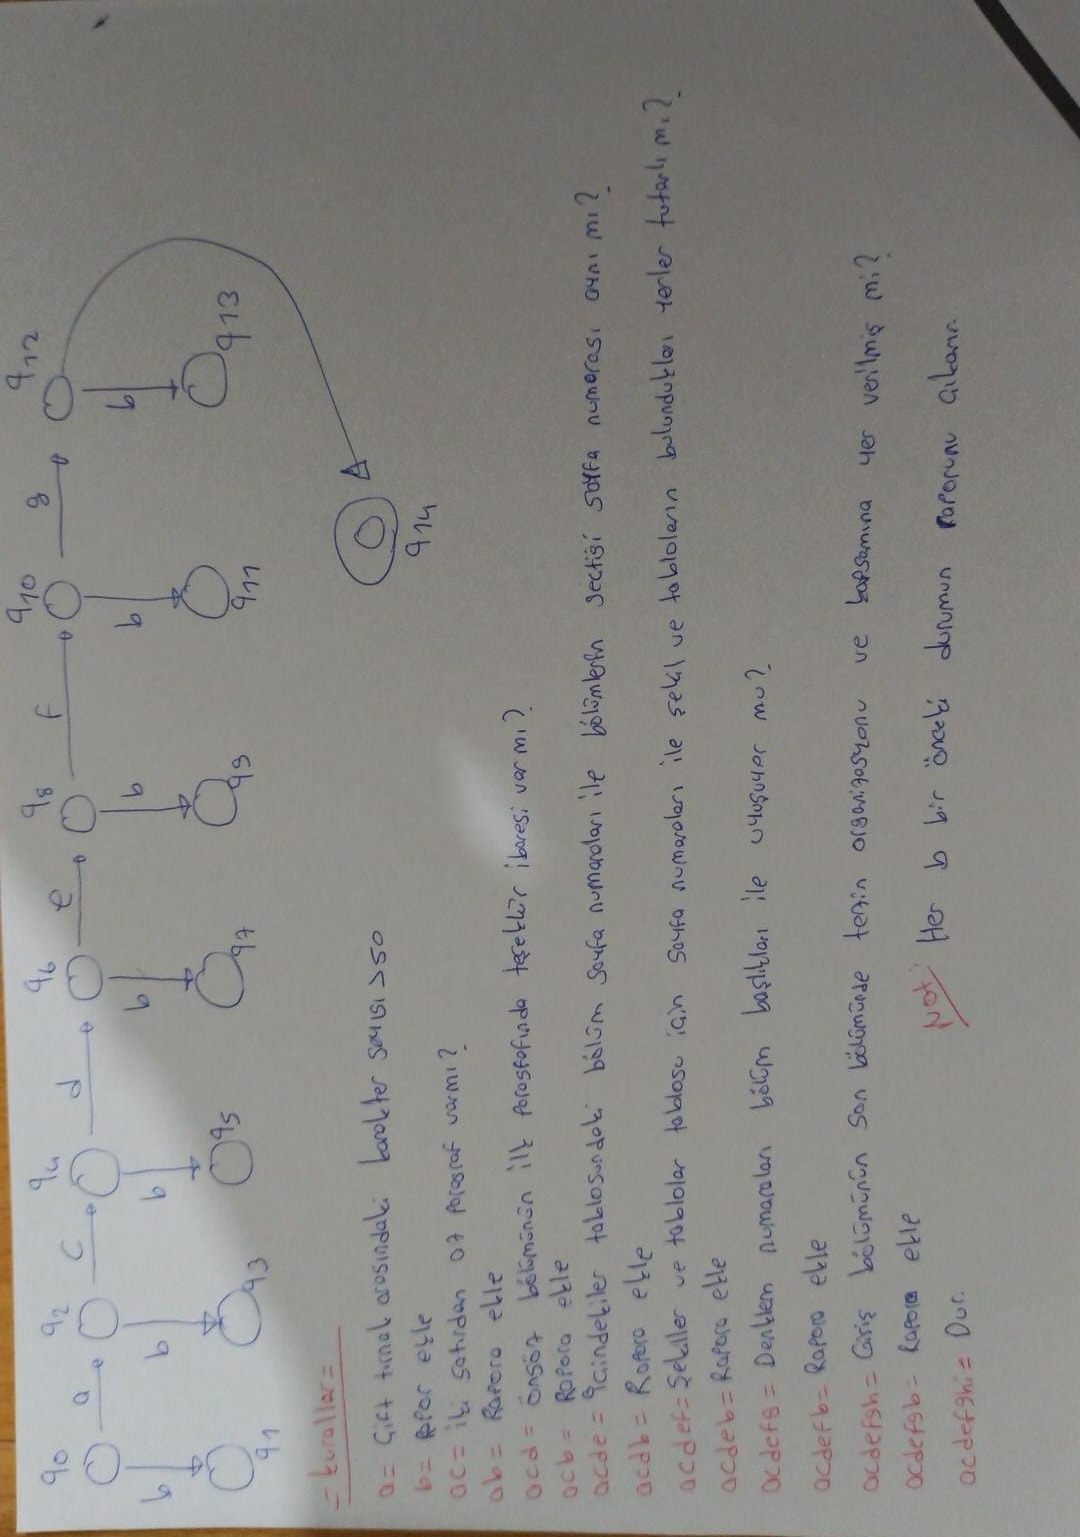 q0 a q2 c q4 d q6 e q8 f q10 g q12
b b b b b b b
q1 q3 q5 q7 q9 q11 q13
q14
= kurallar =
a = Çift tırnak arasındaki karakter sayısı >50
b = Rapor ekle
ac = iki satırdan az paragraf varmı?
ab = Rapora ekle
acd = önsöz bölümünün ilk paragrafında teşekkür ibaresi var mı?
acb = Rapora ekle
acde = içindekiler tablosundaki bölüm sayfa numaraları ile bölümlerin geçtiği sayfa numarası aynı mı?
acdb = Rapora ekle
acdef = Şekiller ve tablolar tablosu için sayfa numaraları ile şekil ve tabloların bulundukları yerler tutarlı mı?
acdeb = Rapora ekle
acdefg = Denklem numaraları bölüm başlıkları ile uyuşuyor mu?
acdefb = Rapora ekle
acdefgh = Giriş bölümünün son bölümünde tezin organizasyonu ve kapsamına yer verilmiş mi?
acdefgb = Rapora ekle
acdefghi = Dur.
Not: Her b bir önceki durumun raporunu çıkarır.